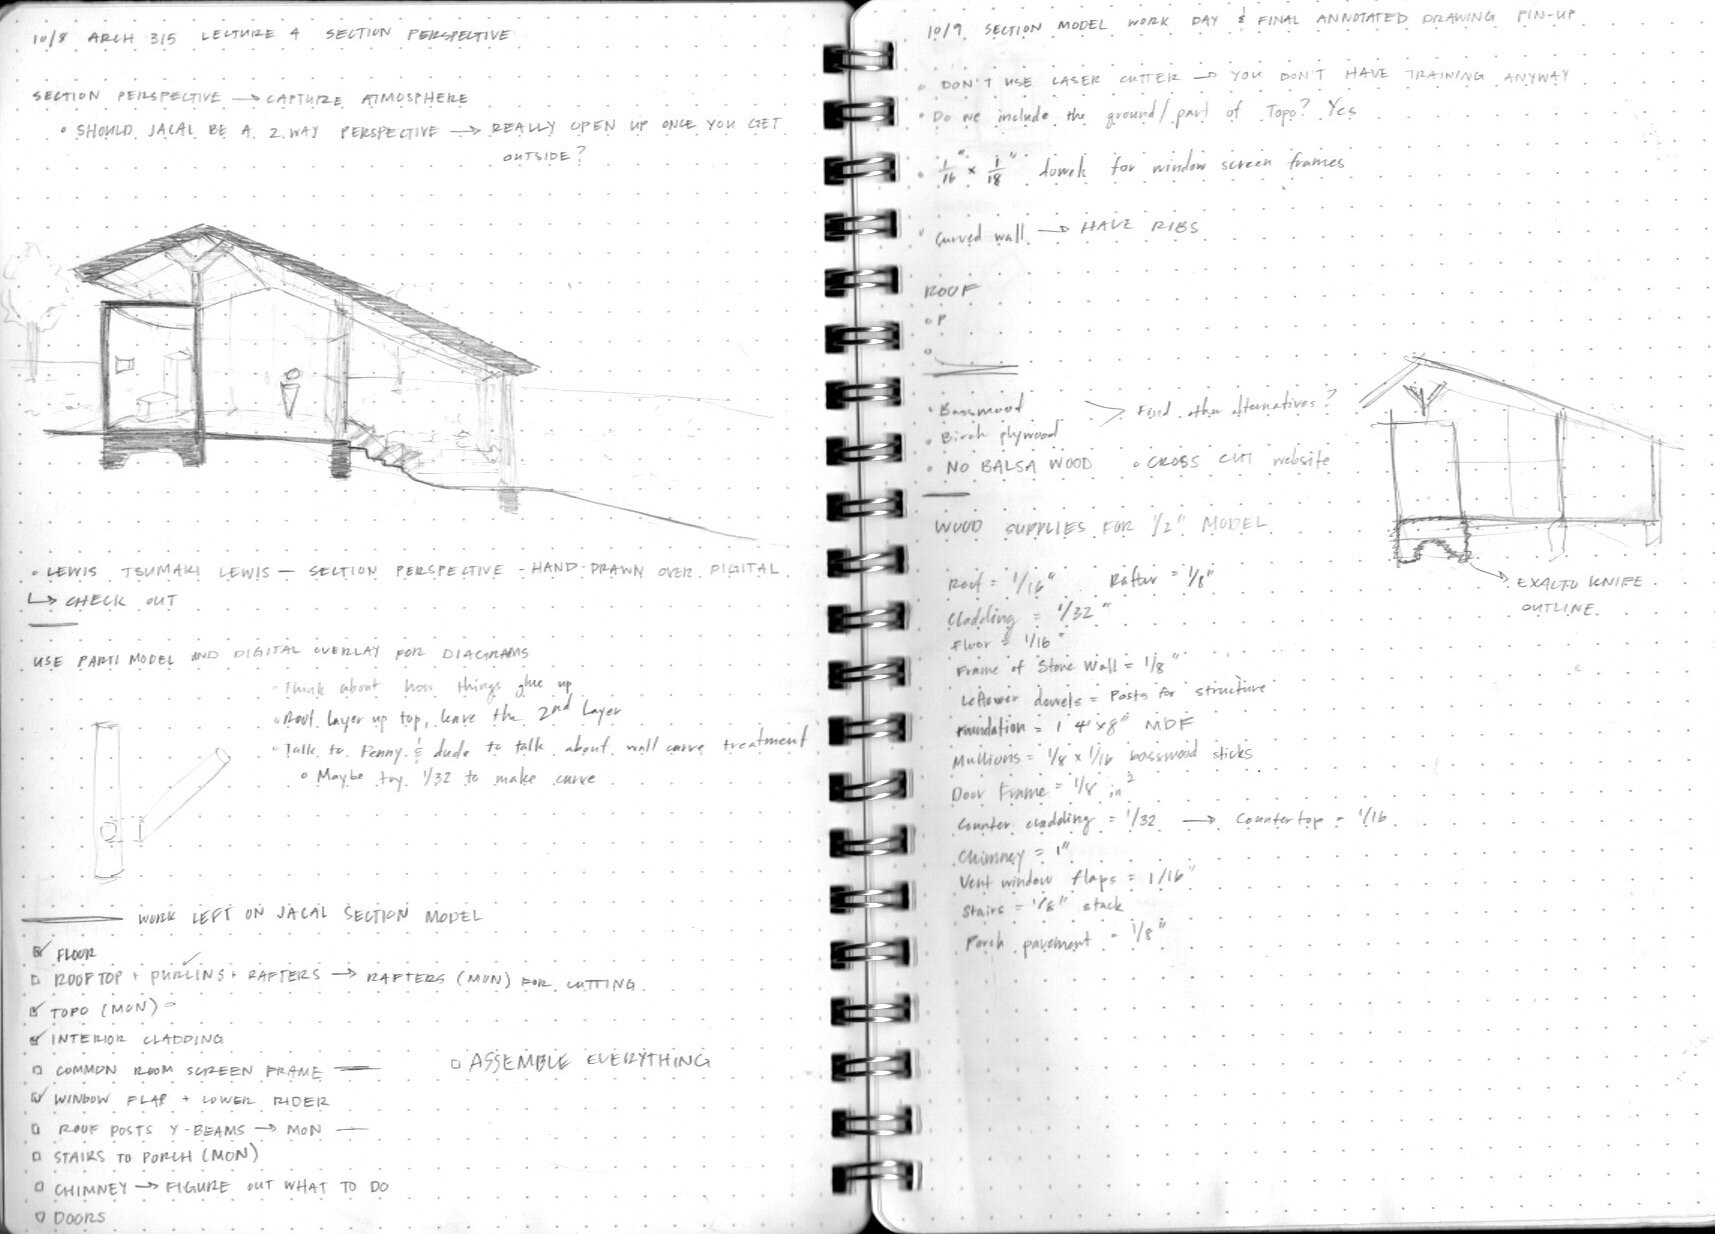 10/8 ARCH 315 LECTURE 4 SECTION PERSPECTIVE
SECTION PERSPECTIVE → CAPTURE ATMOSPHERE
• SHOULD JACAL BE A 2 WAY PERSPECTIVE → REALLY OPEN UP ONCE YOU GET
OUTSIDE?
• LEWIS TSUMAKI LEWIS — SECTION PERSPECTIVE - HAND-DRAWN OVER DIGITAL
↳ CHECK OUT
USE PARTI MODEL AND DIGITAL OVERLAY FOR DIAGRAMS
• Think about how things glue up
• Roof layer up top, leave the 2nd Layer
• Talk to Fenny & dude to talk about wall curve treatment
• Maybe try 1/32 to make curve
WORK LEFT ON JACAL SECTION MODEL
☑ FLOOR
☐ ROOFTOP + PURLINS + RAFTERS → RAFTERS (MON) FOR CUTTING
☑ TOPO (MON) -
☑ INTERIOR CLADDING
☐ COMMON ROOM SCREEN FRAME —
☑ WINDOW FLAP + LOWER RIDER
☐ ROOF POSTS Y-BEAMS → MON —
☐ STAIRS TO PORCH (MON)
☐ CHIMNEY → FIGURE OUT WHAT TO DO
☐ DOORS
☐ ASSEMBLE EVERYTHING
10/9 SECTION MODEL WORK DAY & FINAL ANNOTATED DRAWING PIN-UP
• DON'T USE LASER CUTTER → YOU DON'T HAVE TRAINING ANYWAY
• Do we include the ground/part of Topo? Yes
• 1/16" x 1/18" dowels for window screen frames
• Curved wall → HAVE RIBS
ROOF
• P
• Basswood
• Birch plywood
> Find other alternatives?
• NO BALSA WOOD • CROSS CUT website
WOOD SUPPLIES FOR 1/2" MODEL
Roof = 1/16" Rafter = 1/8"
Cladding = 1/32"
Floor = 1/16"
Frame of Stone Wall = 1/8"
Leftover dowels = Posts for structure
Foundation = 1 4'x8" MDF
Mullions = 1/8 x 1/16 basswood sticks
Door Frame = 1/8 in²
Counter cladding = 1/32 → Countertop = 1/16
Chimney = 1"
Vent window flaps = 1/16"
Stairs = 1/8" stack
Porch pavement = 1/8"
EXACTO KNIFE
OUTLINE.